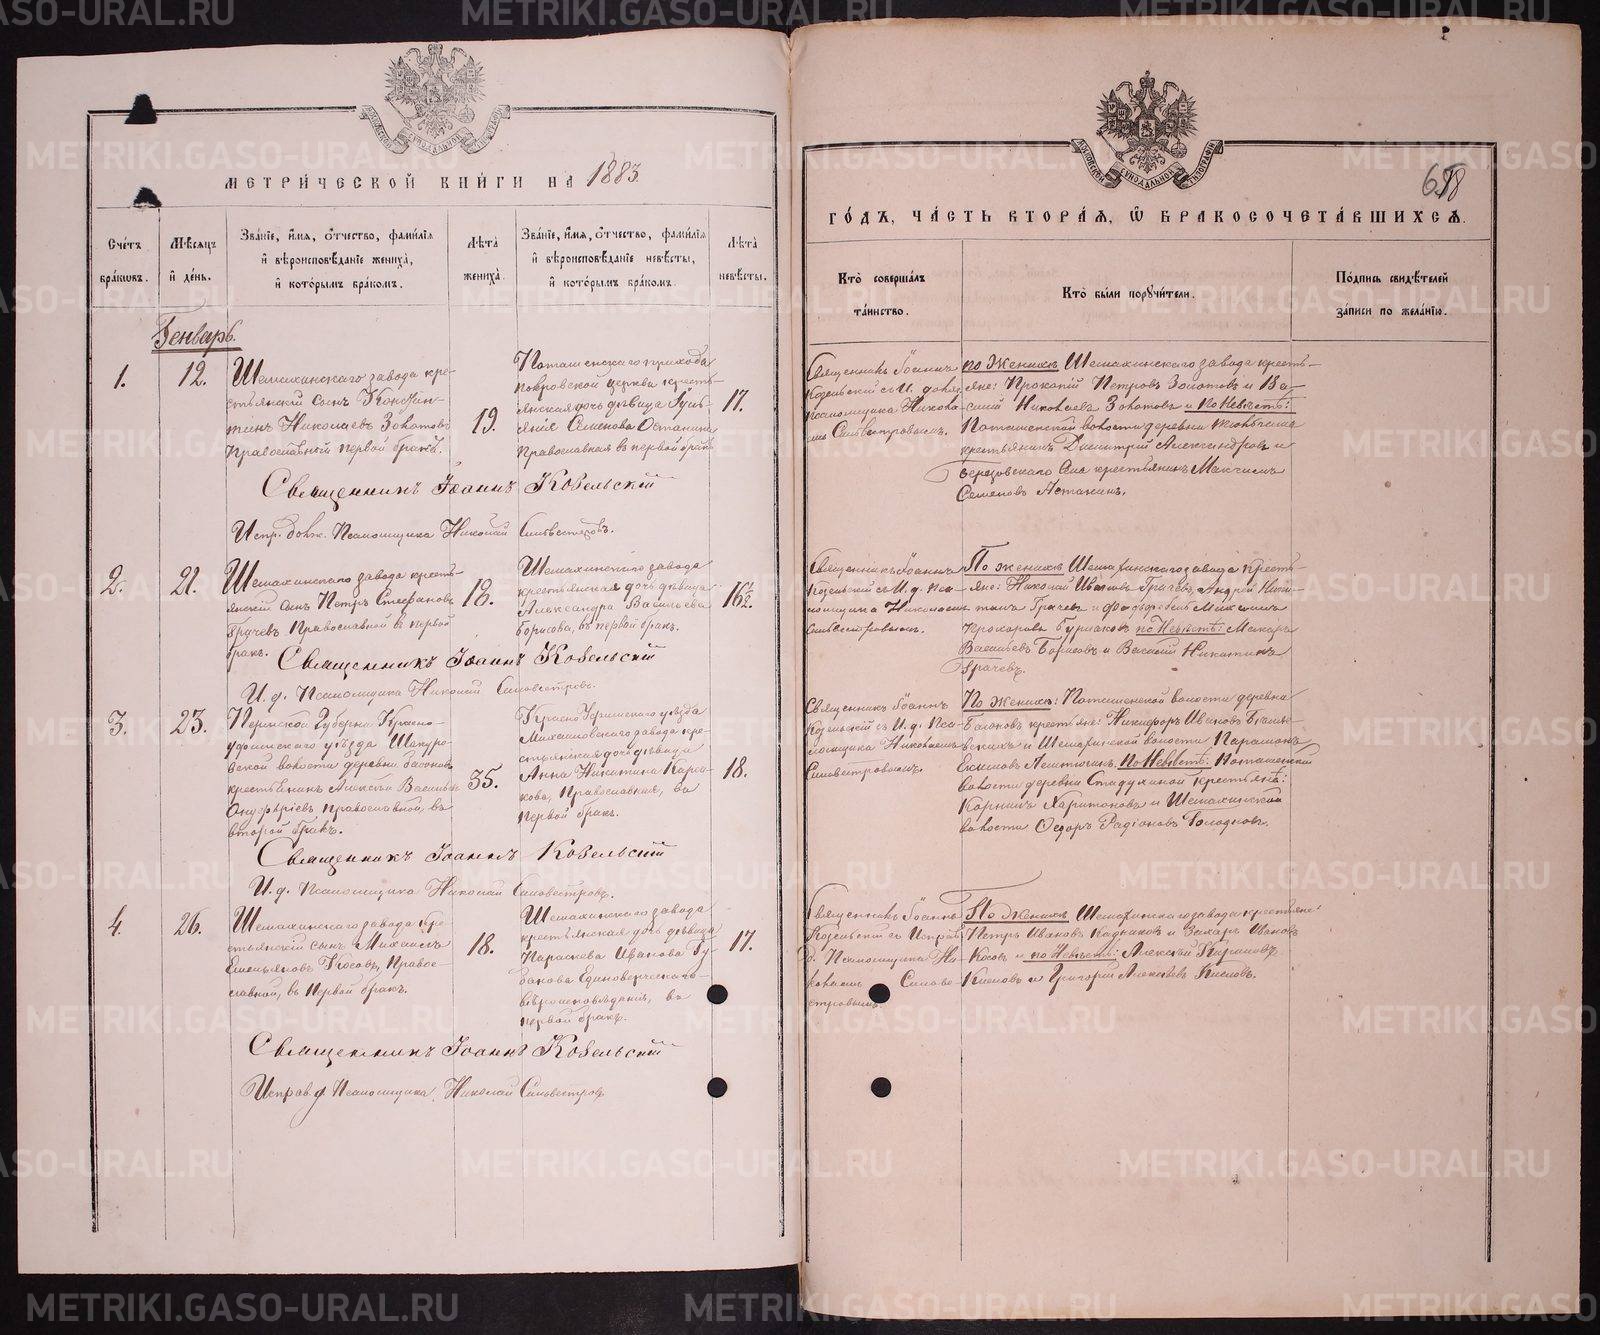 МЕТРИЧЕСКОЙ КНИГИ НА 1883.
Счетъ браковъ.
Мѣсяцъ и день.
Званіе, имя, отчество, фамилія и вѣроисповѣданіе жениха, и которымъ бракомъ.
Лѣта жениха.
Званіе, имя, отчество, фамилія и вѣроисповѣданіе невѣсты, и которымъ бракомъ.
Лѣта невѣсты.
Генварь.
1.
12.
Шемахинскаго завода кре-
стьянскій сынъ Констан-
тинъ Николаевъ Золотовъ
Православный первой бракъ.
19.
Поташенскаго прихода
покровской церкви кресть-
янская дочь дѣвица
Семенова Останина
Православная въ первой бракъ
17.
Священникъ Іоаннъ Козельскій
Испр. долж. Псаломщика Николай Сильвестровъ.
2.
21.
Шемахинскаго завода кресть-
янскій сынъ Петръ Стефановъ
Грачевъ Православной въ первой
бракъ.
18.
Шемахинскаго завода
крестьянская дочь дѣвица
Александра Васильева
Борисова, въ первой бракъ.
16½.
Священникъ Іоаннъ Козельскій
И. д. Псаломщика Николай Сильвестровъ.
3.
23.
Пермской Губерніи Красно-
уфимскаго уѣзда Шокуро-
вской волости деревни
крестьянинъ Алексѣй Васильев
Онуфріевъ Православной, въ
второй бракъ.
35.
Красноуфимскаго уѣзда
Михайловскаго завода кре-
стьянская дочь дѣвица
Анна Никитина
Православная, въ
первой бракъ.
18.
Священникъ Іоаннъ Козельскій
И. д. Псаломщика Николай Сильвестровъ.
4
26.
Шемахинскаго завода кре-
стьянскій сынъ Михаилъ
Емельяновъ Косовъ, Право-
славной, въ Первой бракъ.
18.
Шемахинскаго завода
крестьянская дочь дѣвица
Параскева Иванова
Единоверческаго
вѣроисповѣданія, въ
первой бракъ.
17.
Священникъ Іоаннъ Козельскій
Исправ. д. Псаломщика, Николай Сильвестровъ
658
ГОДЪ, ЧАСТЬ ВТОРАЯ, Ѡ БРАКОСОЧЕТАВШИХСЯ.
Кто совершалъ таинство.
Кто были поручители.
Подпись свидѣтелей записи по желанію.
Священникъ Іоаннъ
Козельскій съ И. долж.
псаломщика Никола-
емъ Сильвестровымъ.
по Женихѣ Шемахинскаго завода кресть-
яне: Прокопій Петровъ Золотовъ и Ва-
силій Николаевъ Золотовъ и по Невѣстѣ:
Поташенской волости деревни
крестьянинъ Димитрій Александровъ и
Березовскаго Села крестьянинъ Максимъ
Семеновъ Астанинъ.
Священникъ Іоаннъ
Козельскій съ И. д. пса-
ломщика Николаемъ
Сильвестровымъ.
По женихѣ Шемахинскаго завода кресть-
яне: Николай Ивановъ Грачевъ, Андрей Ники-
тинъ Грачевъ и фельдфебель Максимъ
Прохоровъ Бурмаковъ по Невѣстѣ: Макаръ
Васильевъ Борисовъ и Василій Никитинъ
Грачевъ.
Священникъ Іоаннъ
Козельскій съ И. д. Пса-
ломщика Николаемъ
Сильвестровымъ.
По Женихѣ: Поташенской волости деревни
крестьяне: Никифоръ Ивановъ
и Шемахинской волости Парамонъ
по Невѣстѣ: Поташенской
волости деревни крестьяне:
Корнилъ Харитоновъ и Шемахинской
волости Ѳедоръ Радіоновъ Холодновъ.
Священникъ Іоаннъ
Козельскій съ Исправ.
д. Псаломщика Ни-
колаемъ Сильве-
стровымъ.
По Женихѣ Шемахинскаго завода крестьяне:
Петръ Ивановъ Кадниковъ и Захаръ Ивановъ
Косовъ и по Невѣстѣ: Алексѣй
Кисловъ и Григорій Алексѣевъ Кисловъ.
METRIKI.GASO-URAL.RU